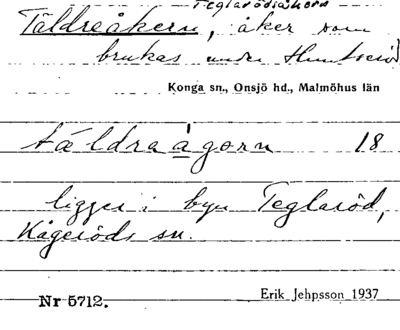 Teglarödsåkern
Täldreåkern, åker som
brukas under
Konga sn., Onsjö hd., Malmöhus län
täldraågorn 18
ligger i byn Teglaröd,
Kågeröds sn.
Nr 5712. Erik Jehpsson 1937